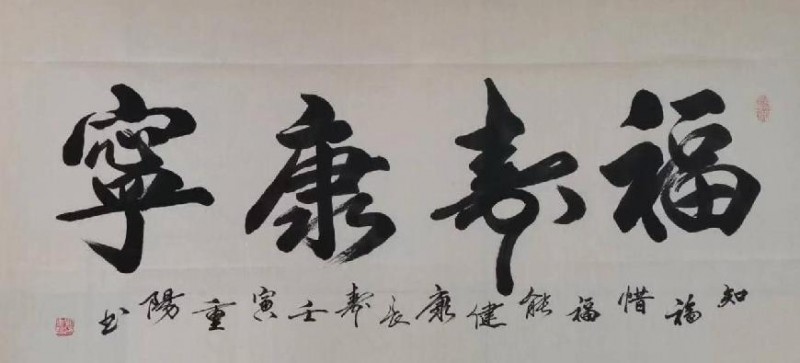 福寿康寧
知福惜福能健康長寿壬寅重陽书